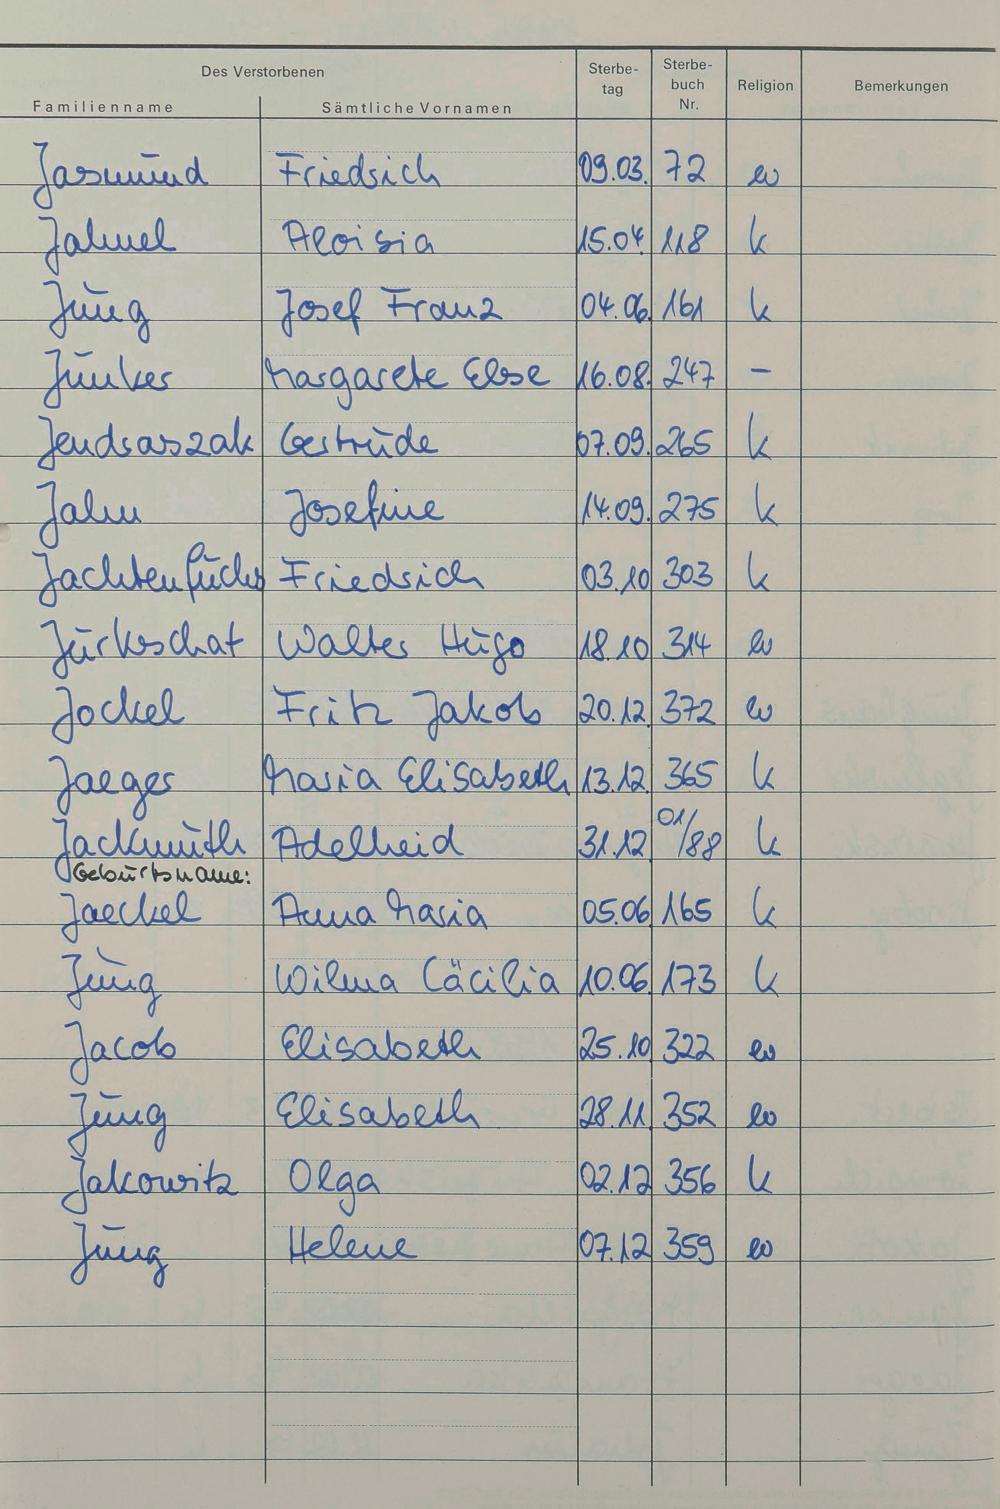 Des Verstorbenen
Familienname Sämtliche Vornamen Sterbe-tag Sterbe-buch Nr. Religion Bemerkungen
Jasmund Friedrich 09.03. 72 ev
Jahnel Aloisia 15.04. 118 k
Jung Josef Franz 04.06. 161 k
Junker Margarete Else 16.08. 247 –
Jendraszak Gertrude 07.09. 265 k
Jahn Josefine 14.09. 275 k
Jachtenfuchs Friedrich 03.10 303 k
Jurkschat Walter Hugo 18.10 314 ev
Jockel Fritz Jakob 20.12. 372 ev
Jaeger Maria Elisabeth 13.12. 365 k
Jackmuth Adelheid 31.12. 01/88 k
Geburtsname:
Jaeckel Anna Maria 05.06 165 k
Jung Wilma Cäcilia 10.06. 173 k
Jacob Elisabeth 25.10 322 ev
Jung Elisabeth 28.11. 352 ev
Jakowitz Olga 02.12 356 k
Jung Helene 07.12 359 ev